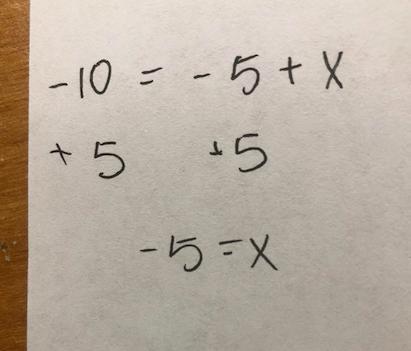 -10 = -5 + X
+ 5 + 5
-5 = X